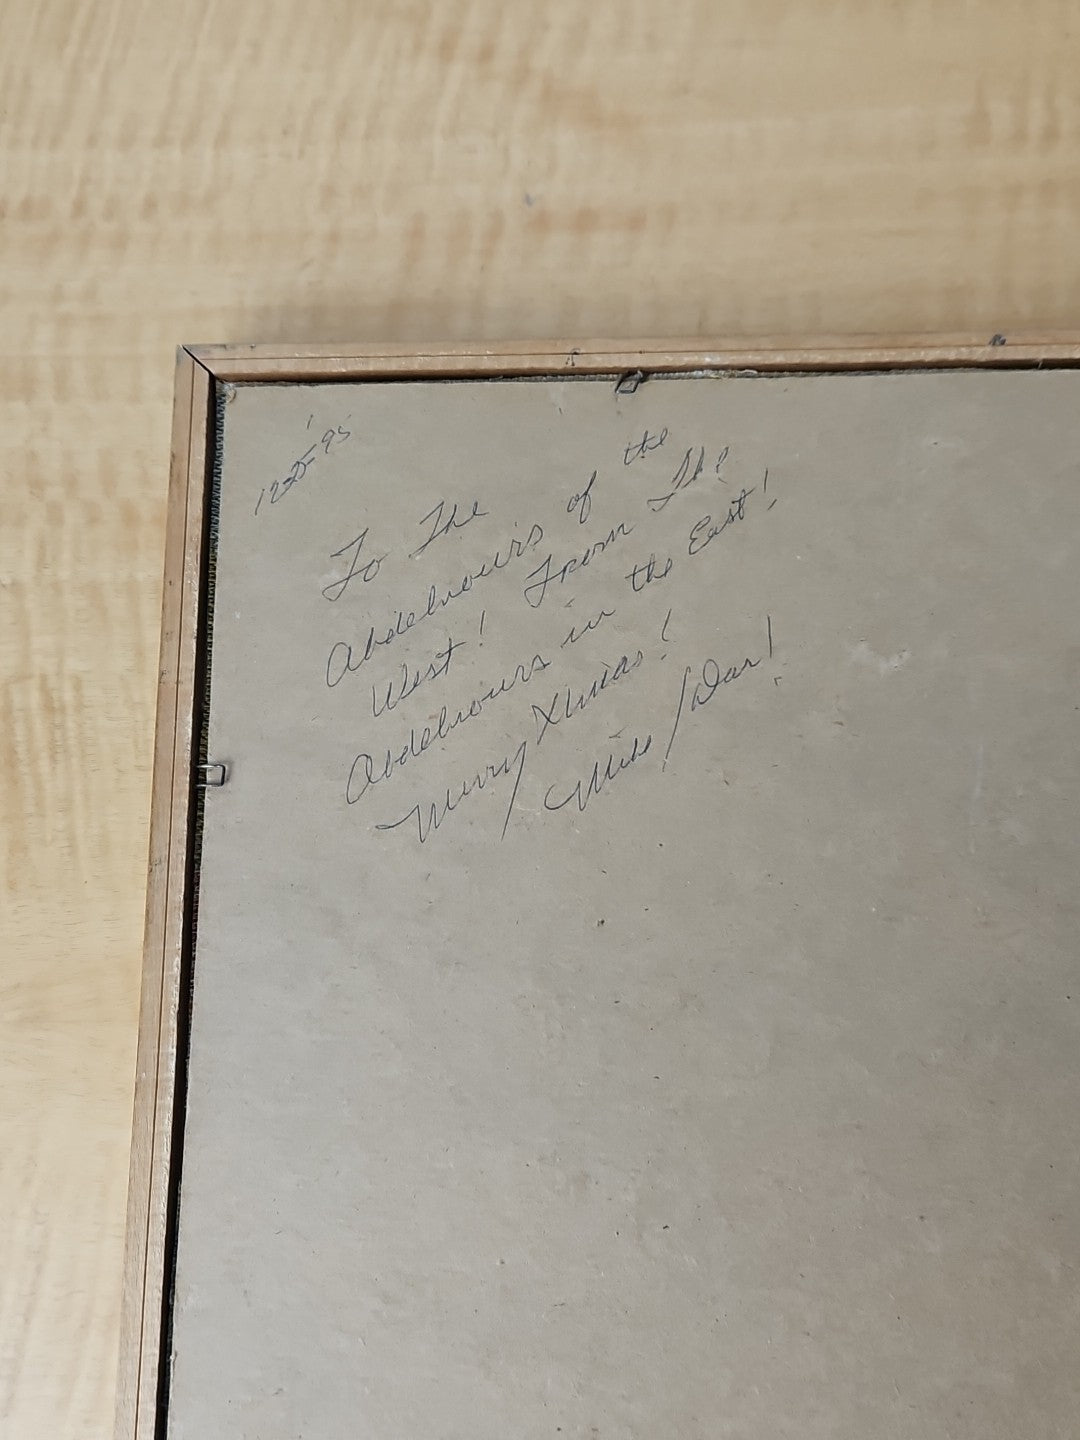 12-25-'95
To The
Abdelnour's of the
West! From The
Abdelnours in the East!
Merry Xmas!
Mike/Dar!